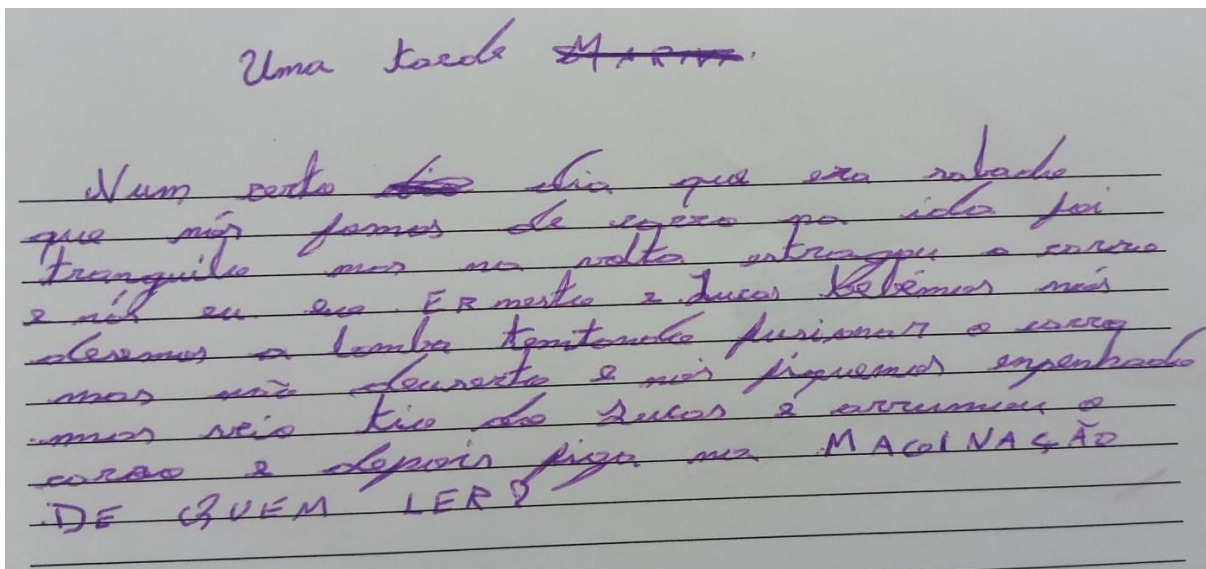 Uma tarde
Num serto dia que era sabado
que nós fomos de carro na ida foi
tranquilo mas na volta estragou o carro
e nós eu eu ERnesto e Lucas Bebêmos nós
desemos a lomba tentando fusionar o carro
mas não deu serto e nós fiquemos enpenhado
mas veio tio do Lucas e arrumou o
carro e depois fica na MAGINAÇÃO
DE QUEM LER?